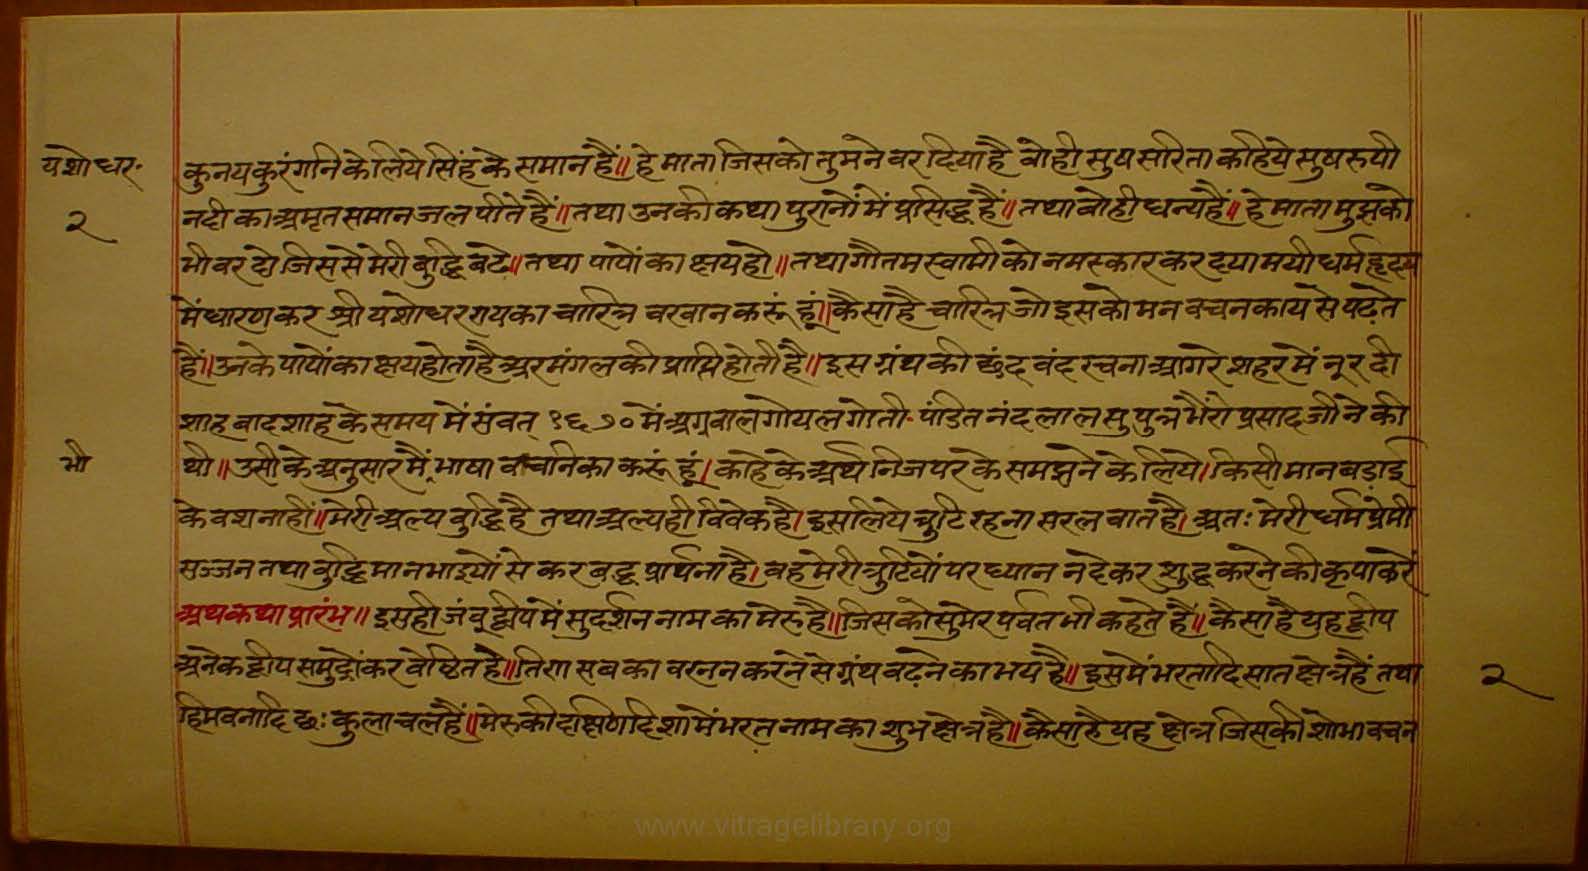 यशोधर.
२
कुनय कुरंगनि के लिये सिंह के समान हैं॥ हे माता जिसको तुमने वर दिया है वोही सुष सरिता कहिये सुष रुपी
नदी का अमृत समान जल पीते हैं॥ तथा उनकी कथा पुरानों में प्रसिद्ध हैं॥ तथा वोही धन्य हैं॥ हे माता मुझको
भी वर दो जिससे मेरी बुद्धि बढे॥ तथा पापों का क्षय हो॥ तथा गौतम स्वामी को नमस्कार कर दया मयी धर्म हृदय
में धारण कर श्री यशोधर राय का चारित्र वरवान करूं हूं॥ कैसा है चारित्र जो इसको मन वचन काय से पढ़ते
हैं॥ उनके पापों का क्षय होता है अर मंगल की प्राप्ति होती है॥ इस ग्रंथ की छंद वंद रचना आगरे शहर में नूर दी
शाह बादशाह के समय में संवत् १६७० में अग्रवाल गोयल गोती पंडित नंदलाल सुपुत्र भैरों प्रसाद जी ने की
भौ
थी॥ उसी के अनुसार मैं भाषा वचनिका करूं हूं। काहे के अर्थ निज पर के समझने के लिये। किसी मान बड़ाई
के वश नाहीं॥ मेरी अल्प बुद्धि है तथा अल्प ही विवेक है। इसलिये त्रुटि रहना सरल बात है। अतः मेरी धर्म प्रेमी
सज्जन तथा बुद्धिमान भाइयों से कर बद्ध प्रार्थना है। वह मेरी त्रुटियों पर ध्यान न देकर शुद्ध करने की कृपा करें
अथ कथा प्रारंभ॥ इसही जंवूद्वीप में सुदर्शन नाम का मेरु है॥ जिसको सुमेर पर्वत भी कहते हैं॥ कैसा है युह द्वीप
अनेक द्वीप समुद्रों कर वेष्ठित है॥ तिरा सब का वरनन करने से ग्रंथ वढ़ने का भय है॥ इसमें भरतादि सात क्षेत्र हैं तथा
२
हिमवनादि छः कुलाचल हैं॥ मेरु की दक्षिण दिशा में भरत नाम का शुभ क्षेत्र है॥ कैसा है यह क्षेत्र जिसकी शोभा वचन
www.vitragelibrary.org